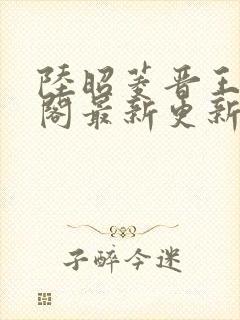 陸昭菱晋王
閣最新更新
子醉今迷